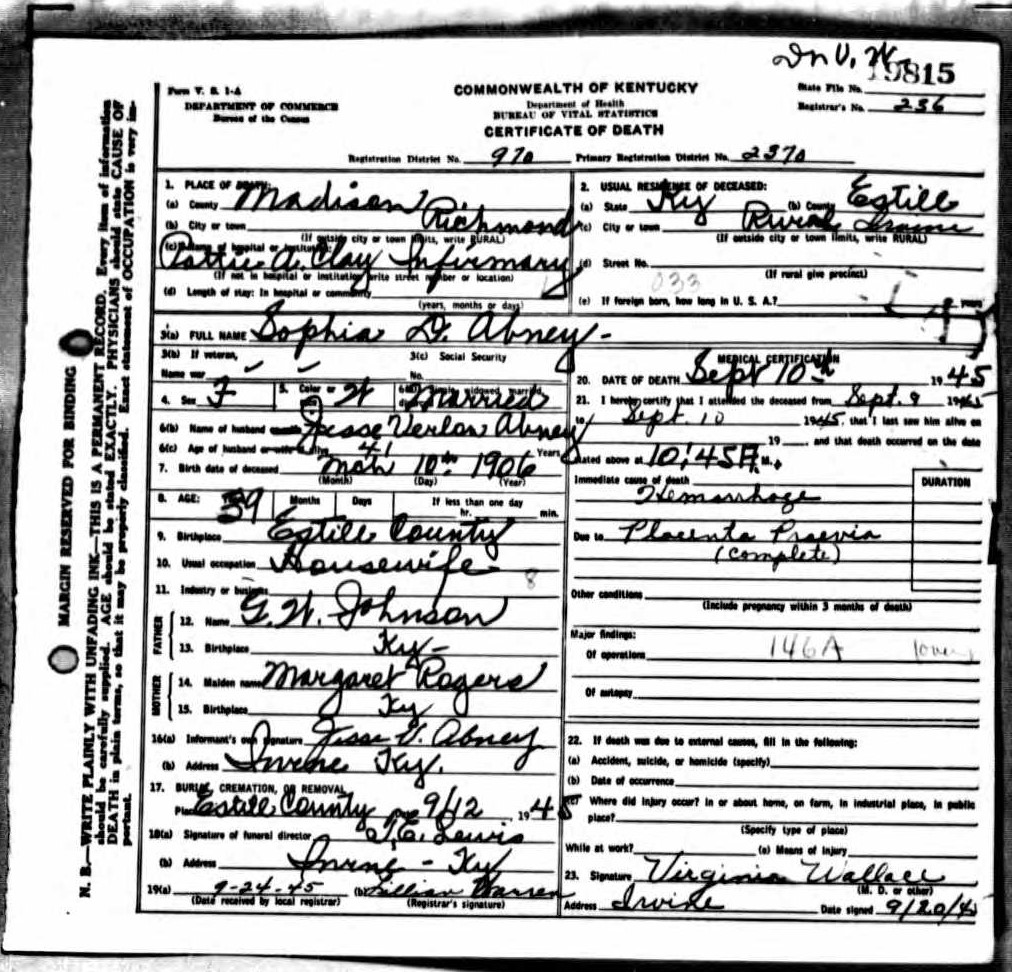 Dr V. W.
19815
Form V. S. 1-A
DEPARTMENT OF COMMERCE
Bureau of the Census
COMMONWEALTH OF KENTUCKY
Department of Health
BUREAU OF VITAL STATISTICS
CERTIFICATE OF DEATH
State File No.
Registrar's No. 236
Registration District No. 970 Primary Registration District No. 2370
MARGIN RESERVED FOR BINDING
N. B.—WRITE PLAINLY WITH UNFADING INK—THIS IS A PERMANENT RECORD. Every item of information
should be carefully supplied. AGE should be stated EXACTLY. PHYSICIANS should state CAUSE OF
DEATH in plain terms, so that it may be properly classified. Exact statement of OCCUPATION is very im-
portant.
1. PLACE OF DEATH:
(a) County Madison
(b) City or town Richmond
(If outside city or town limits, write RURAL)
(c) Name of hospital or institution:
Pattie A. Clay Infirmary
(If not in hospital or institution write street number or location)
(d) Length of stay: In hospital or community
(years, months or days)
2. USUAL RESIDENCE OF DECEASED:
(a) State Ky (b) County Estill
(c) City or town Rural Irvine
(If outside city or town limits, write RURAL)
(d) Street No.
(If rural give precinct)
033
(e) If foreign born, how long in U. S. A.? years
3(a) FULL NAME Sophia D. Abney
3(b) If veteran,
Name war
3(c) Social Security
No.
4. Sex F 5. Color or W Married
6(b) Name of husband Jesse Verlon Abney
6(c) Age of husband or wife if alive 41 Years
7. Birth date of deceased Mch 10th 1906
(Month) (Day) (Year)
8. AGE: 39 Months Days If less than one day
hr. min.
9. Birthplace Estill County
10. Usual occupation Housewife
8
11. Industry or business
FATHER
12. Name G. W. Johnson
13. Birthplace Ky
MOTHER
14. Maiden name Margaret Rogers
15. Birthplace Ky
16(a) Informant's own Signature Jesse V. Abney
(b) Address Irvine Ky.
17. BURIAL, CREMATION, OR REMOVAL
Place Estill County Date 9/12 1945
18(a) Signature of funeral director T. E. Lewis
(b) Address Irvine - Ky
19(a) 9-24-45 (b) Lillian Warren
(Date received by local registrar) (Registrar's signature)
MEDICAL CERTIFICATION
20. DATE OF DEATH Sept 10th 1945
21. I hereby certify that I attended the deceased from Sept. 9 1945
to Sept. 10 1945, that I last saw him alive on
19 , and that death occurred on the date
stated above at 10:45 A. M.
Immediate cause of death
DURATION
Hemorrhage
Due to Placenta Praevia
(complete)
Other conditions
(Include pregnancy within 3 months of death)
Major findings:
146A
Of operations
Of autopsy
22. If death was due to external causes, fill in the following:
(a) Accident, suicide, or homicide (specify)
(b) Date of occurrence
(c) Where did injury occur? In or about home, on farm, in industrial place, in public
place?
(Specify type of place)
While at work? (e) Means of Injury
23. Signature Virginia Wallace
(M. D. or other)
Address Irvine Date signed 9/20/45